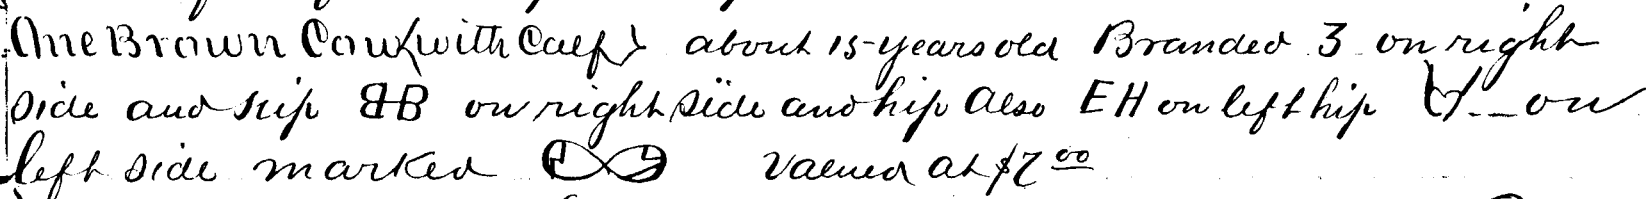 One Brown Cow (with Calf) about 15 years old Branded 3 on right
side and hip BB on right side and hip Also EH on left hip on
left side marked Valued at $7 00